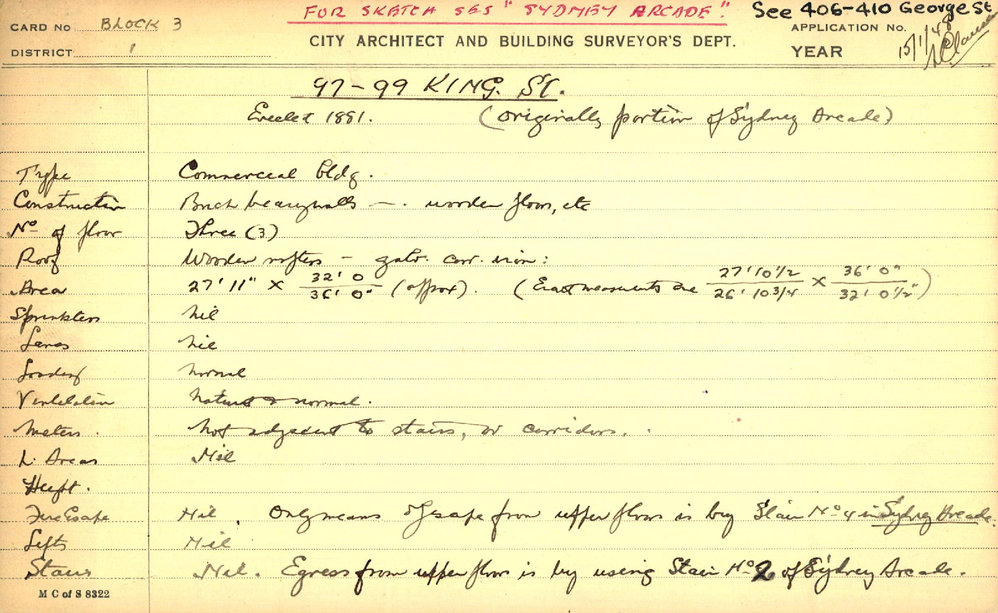 FOR SKETCH SEE "SYDNEY ARCADE".
See 406-410 George St
CARD No BLOCK 3
APPLICATION No.
DISTRICT 1
CITY ARCHITECT AND BUILDING SURVEYOR'S DEPT.
YEAR
15/1/48
97-99 KING. ST.
Erected 1881. (Originally portion of Sydney Arcade)
Type Commercial bldg.
Construction Brick bearg walls - . wooden floors, etc
No of floor Three (3)
Roof Wooden rafters - galv. corr. iron:
Area 27' 11" x 32' 0 / 36' 0" (approx). (Exact measurements are 27' 10 1/2 / 26' 10 3/4 x 36' 0" / 32' 0 1/2")
Sprinklers Nil
Lanes Nil
Loading Normal
Ventilation Natural & normal.
Meters. Not adjacent to stairs, or corridors.
L. Areas Nil
Hyft.
Fire Escape Nil. Only means of escape from upper floors is by Stair No 4 in Sydney Arcade.
Lifts Nil
Stairs Nil. Egress from upper floors is by using Stair No 2 of Sydney Arcade.
M C of S 8322